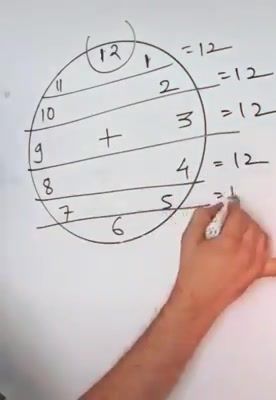 12
11 1 = 12
10 2 = 12
9 + 3 = 12
8 4 = 12
7 5 = 1
6